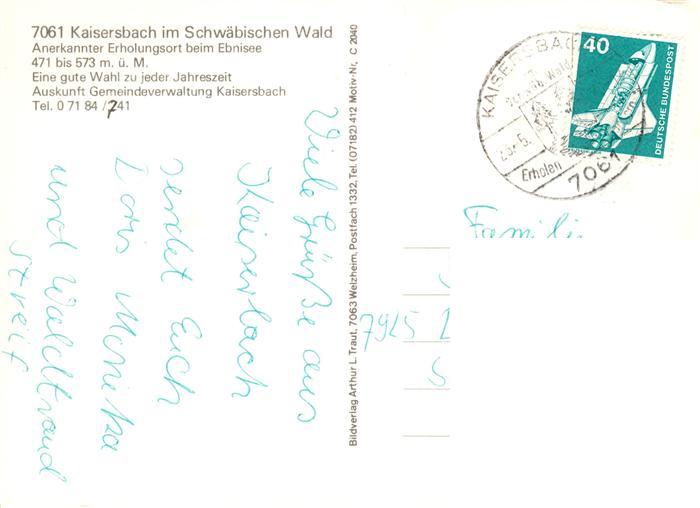 7061 Kaisersbach im Schwäbischen Wald
Anerkannter Erholungsort beim Ebnisee
471 bis 573 m. ü. M.
Eine gute Wahl zu jeder Jahreszeit
Auskunft Gemeindeverwaltung Kaisersbach
Tel. 0 71 84 / 741
Viele Grüße aus
Kaiserbach
sendet Euch
Doris Monika
und Waldtraud
Streif
Bildverlag Arthur L. Traut, 7063 Welzheim, Postfach 1332, Tel. (07182) 412 Motiv-Nr. C 2040
KAISERSBAC
Wald
23.-5.
Erholen
7061
40
DEUTSCHE BUNDESPOST
Famili
7925